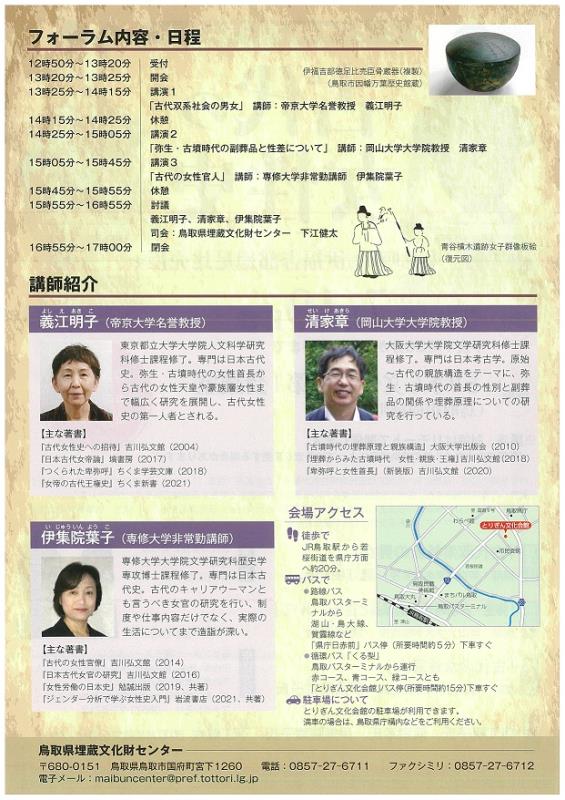 フォーラム内容・日程
12時50分〜13時20分 受付
13時20分〜13時25分 開会
13時25分〜14時15分 講演1
「古代双系社会の男女」 講師：帝京大学名誉教授 義江明子
14時15分〜14時25分 休憩
14時25分〜15時05分 講演2
「弥生・古墳時代の副葬品と性差について」 講師：岡山大学大学院教授 清家章
15時05分〜15時45分 講演3
「古代の女性官人」 講師：専修大学非常勤講師 伊集院葉子
15時45分〜15時55分 休憩
15時55分〜16時55分 討議
義江明子、清家章、伊集院葉子
司会：鳥取県埋蔵文化財センター 下江健太
16時55分〜17時00分 閉会
伊福吉部徳足比売臣骨蔵器(複製)
(鳥取市因幡万葉歴史館蔵)
青谷横木遺跡女子群像板絵
(復元図)
講師紹介
よしえあきこ
義江明子（帝京大学名誉教授）
東京都立大学大学院人文科学研究
科修士課程修了。専門は日本古代
史。弥生・古墳時代の女性首長か
ら古代の女性天皇や豪族層女性ま
で幅広く研究を展開し、古代女性
史の第一人者とされる。
【主な著書】
『古代女性史への招待』吉川弘文館（2004）
『日本古代女帝論』塙書房（2017）
『つくられた卑弥呼』ちくま学芸文庫（2018）
『女帝の古代王権史』ちくま新書（2021）
せいけあきら
清家章（岡山大学大学院教授）
大阪大学大学院文学研究科修士課
程修了。専門は日本考古学。原始
〜古代の親族構造をテーマに、弥
生・古墳時代の首長の性別と副葬
品の関係や埋葬原理についての研
究を行っている。
【主な著書】
『古墳時代の埋葬原理と親族構造』大阪大学出版会（2010）
『埋葬からみた古墳時代 女性・親族・王権』吉川弘文館(2018)
『卑弥呼と女性首長』（新装版）吉川弘文館（2020）
いじゅういんようこ
伊集院葉子（専修大学非常勤講師）
専修大学大学院文学研究科歴史学
専攻博士課程修了。専門は日本古
代史。古代のキャリアウーマンと
も言うべき女官の研究を行い、制
度や仕事内容だけでなく、実際の
生活についてまで造詣が深い。
【主な著書】
『古代の女性官僚』吉川弘文館（2014）
『日本古代女官の研究』吉川弘文館（2016）
『女性労働の日本史』勉誠出版（2019、共著）
『ジェンダー分析で学ぶ女性史入門』岩波書店（2021、共著）
会場アクセス
徒歩で
JR鳥取駅から若
桜街道を県庁方面
へ約20分。
バスで
●路線バス
鳥取バスターミ
ナルから
湖山・鳥大線、
賀露線など
「県庁日赤前」バス停（所要時間約5分）下車すぐ
●循環バス「くる梨」
鳥取バスターミナルから運行
赤コース、青コース、緑コースとも
「とりぎん文化会館」バス停(所要時間約15分)下車すぐ
駐車場について
とりぎん文化会館の駐車場が利用できます。
満車の場合は、鳥取県庁構内などをご利用ください。
鳥取県庁
わらべ館
とりぎん文化会館
市民会館
まちパル鳥取
鳥取大丸
鳥取バスターミナル
鳥取県埋蔵文化財センター
〒680-0151 鳥取県鳥取市国府町宮下1260 電話：0857-27-6711 ファクシミリ：0857-27-6712
電子メール：maibuncenter@pref.tottori.lg.jp